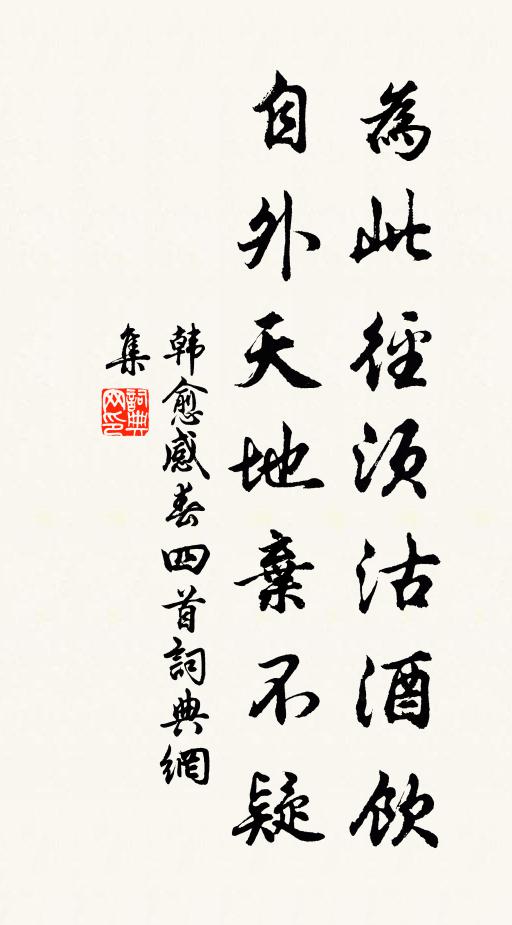 為此徑須沽酒飲
自外天地棄不疑
韩愈感春四首詞典網
集
詞典
网印